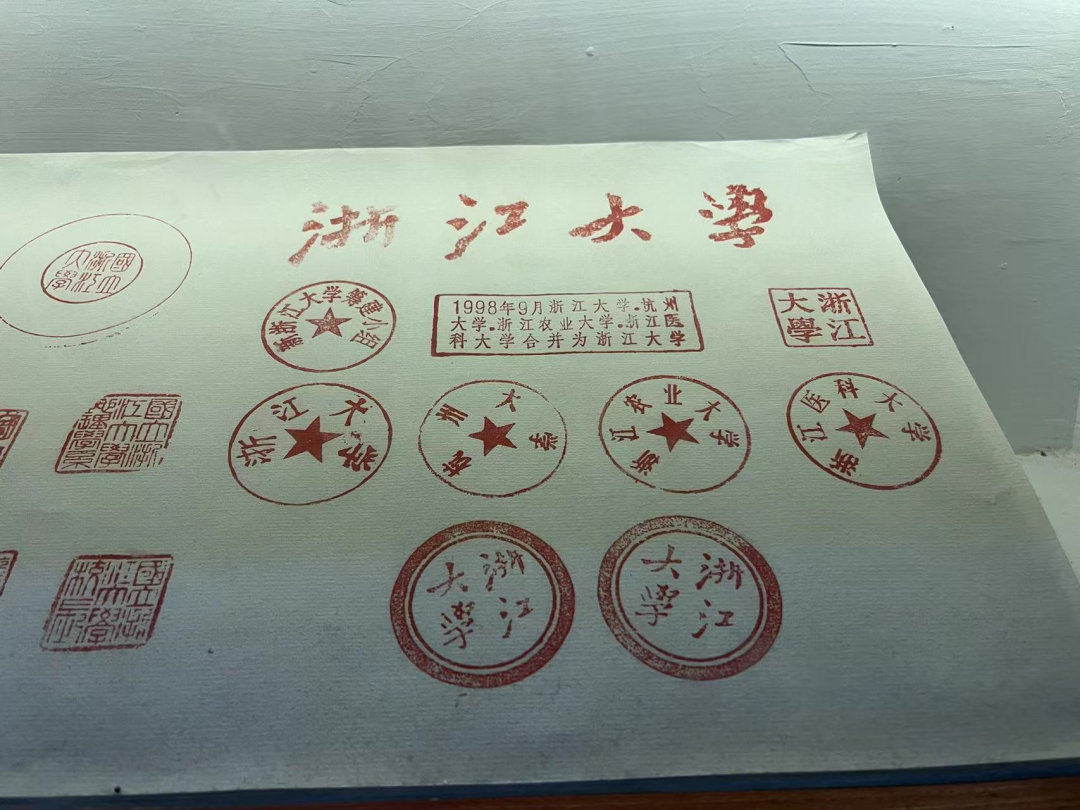 浙江大學
國立浙江大學
新浙江大学筹建小组
1998年9月浙江大学.杭州
大学.浙江农业大学.浙江医
科大学合并为浙江大学
浙江大學
浙江大学
杭州大学
浙江农业大学
浙江医科大学
浙江大學
浙江大學